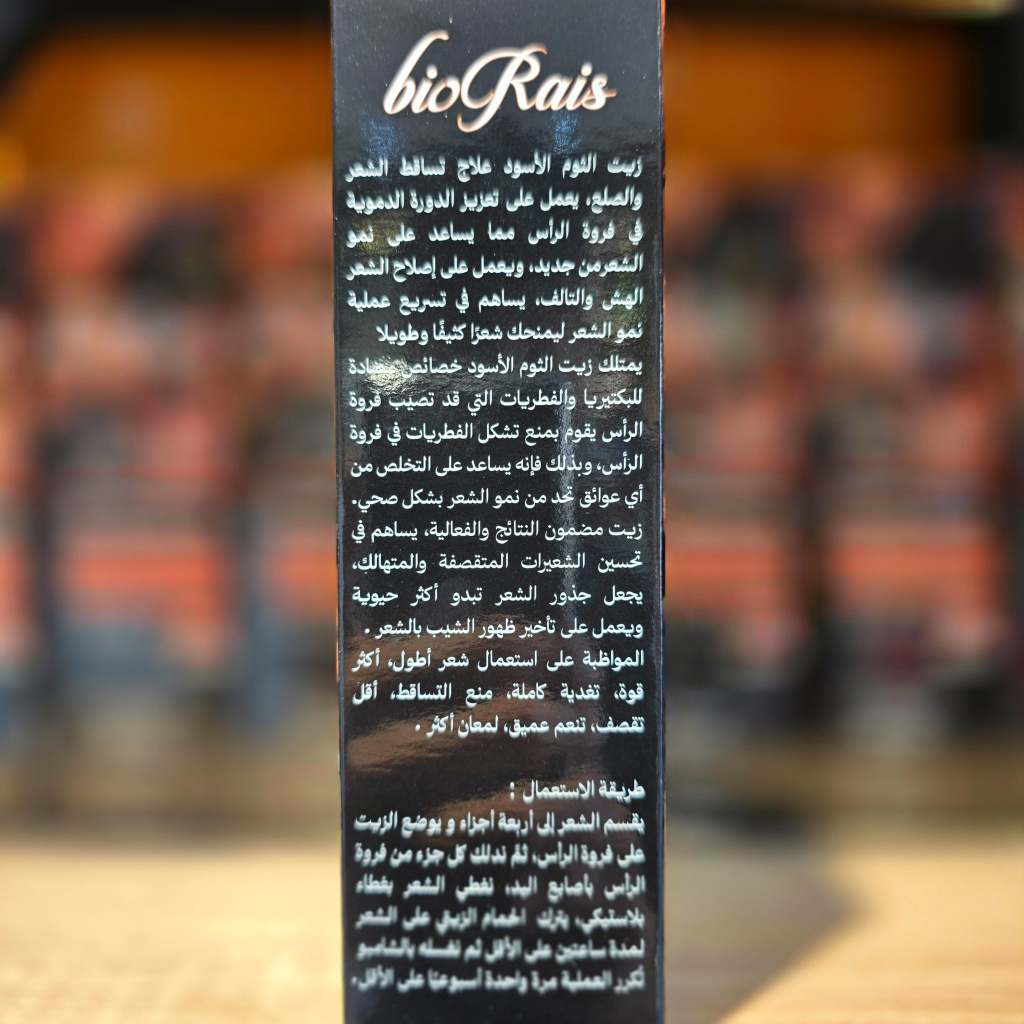 bioRais
زيت الثوم الأسود علاج تساقط الشعر
والصلع، يعمل على تعزيز الدورة الدموية
في فروة الرأس مما يساعد على نمو
الشعرمن جديد، ويعمل على إصلاح الشعر
الهش والتالف، يساهم في تسريع عملية
نمو الشعر ليمنحك شعرًا كثيفًا وطويلا
يمتلك زيت الثوم الأسود خصائص مضادة
للبكتيريا والفطريات التي قد تصيب فروة
الرأس يقوم بمنع تشكل الفطريات في فروة
الرأس، وبذلك فإنه يساعد على التخلص من
أي عوائق تحد من نمو الشعر بشكل صحي.
زيت مضمون النتائج والفعالية، يساهم في
تحسين الشعيرات المتقصفة والمتهالك،
يجعل جذور الشعر تبدو أكثر حيوية
ويعمل على تأخير ظهور الشيب بالشعر .
المواظبة على استعمال شعر أطول، أكثر
قوة، تغدية كاملة، منع التساقط، أقل
تقصف، تنعم عميق، لمعان أكثر .
طريقة الاستعمال :
يقسم الشعر إلى أربعة أجزاء و يوضع الزيت
على فروة الرأس، ثم ندلك كل جزء من فروة
الرأس بأصابع اليد، نغطي الشعر بغطاء
بلاستيكي، يترك الحمام الزيتي على الشعر
لمدة ساعتين على الأقل ثم نغسله بالشامبو
تُكرر العملية مرة واحدة أسبوعيًا على الأقل.